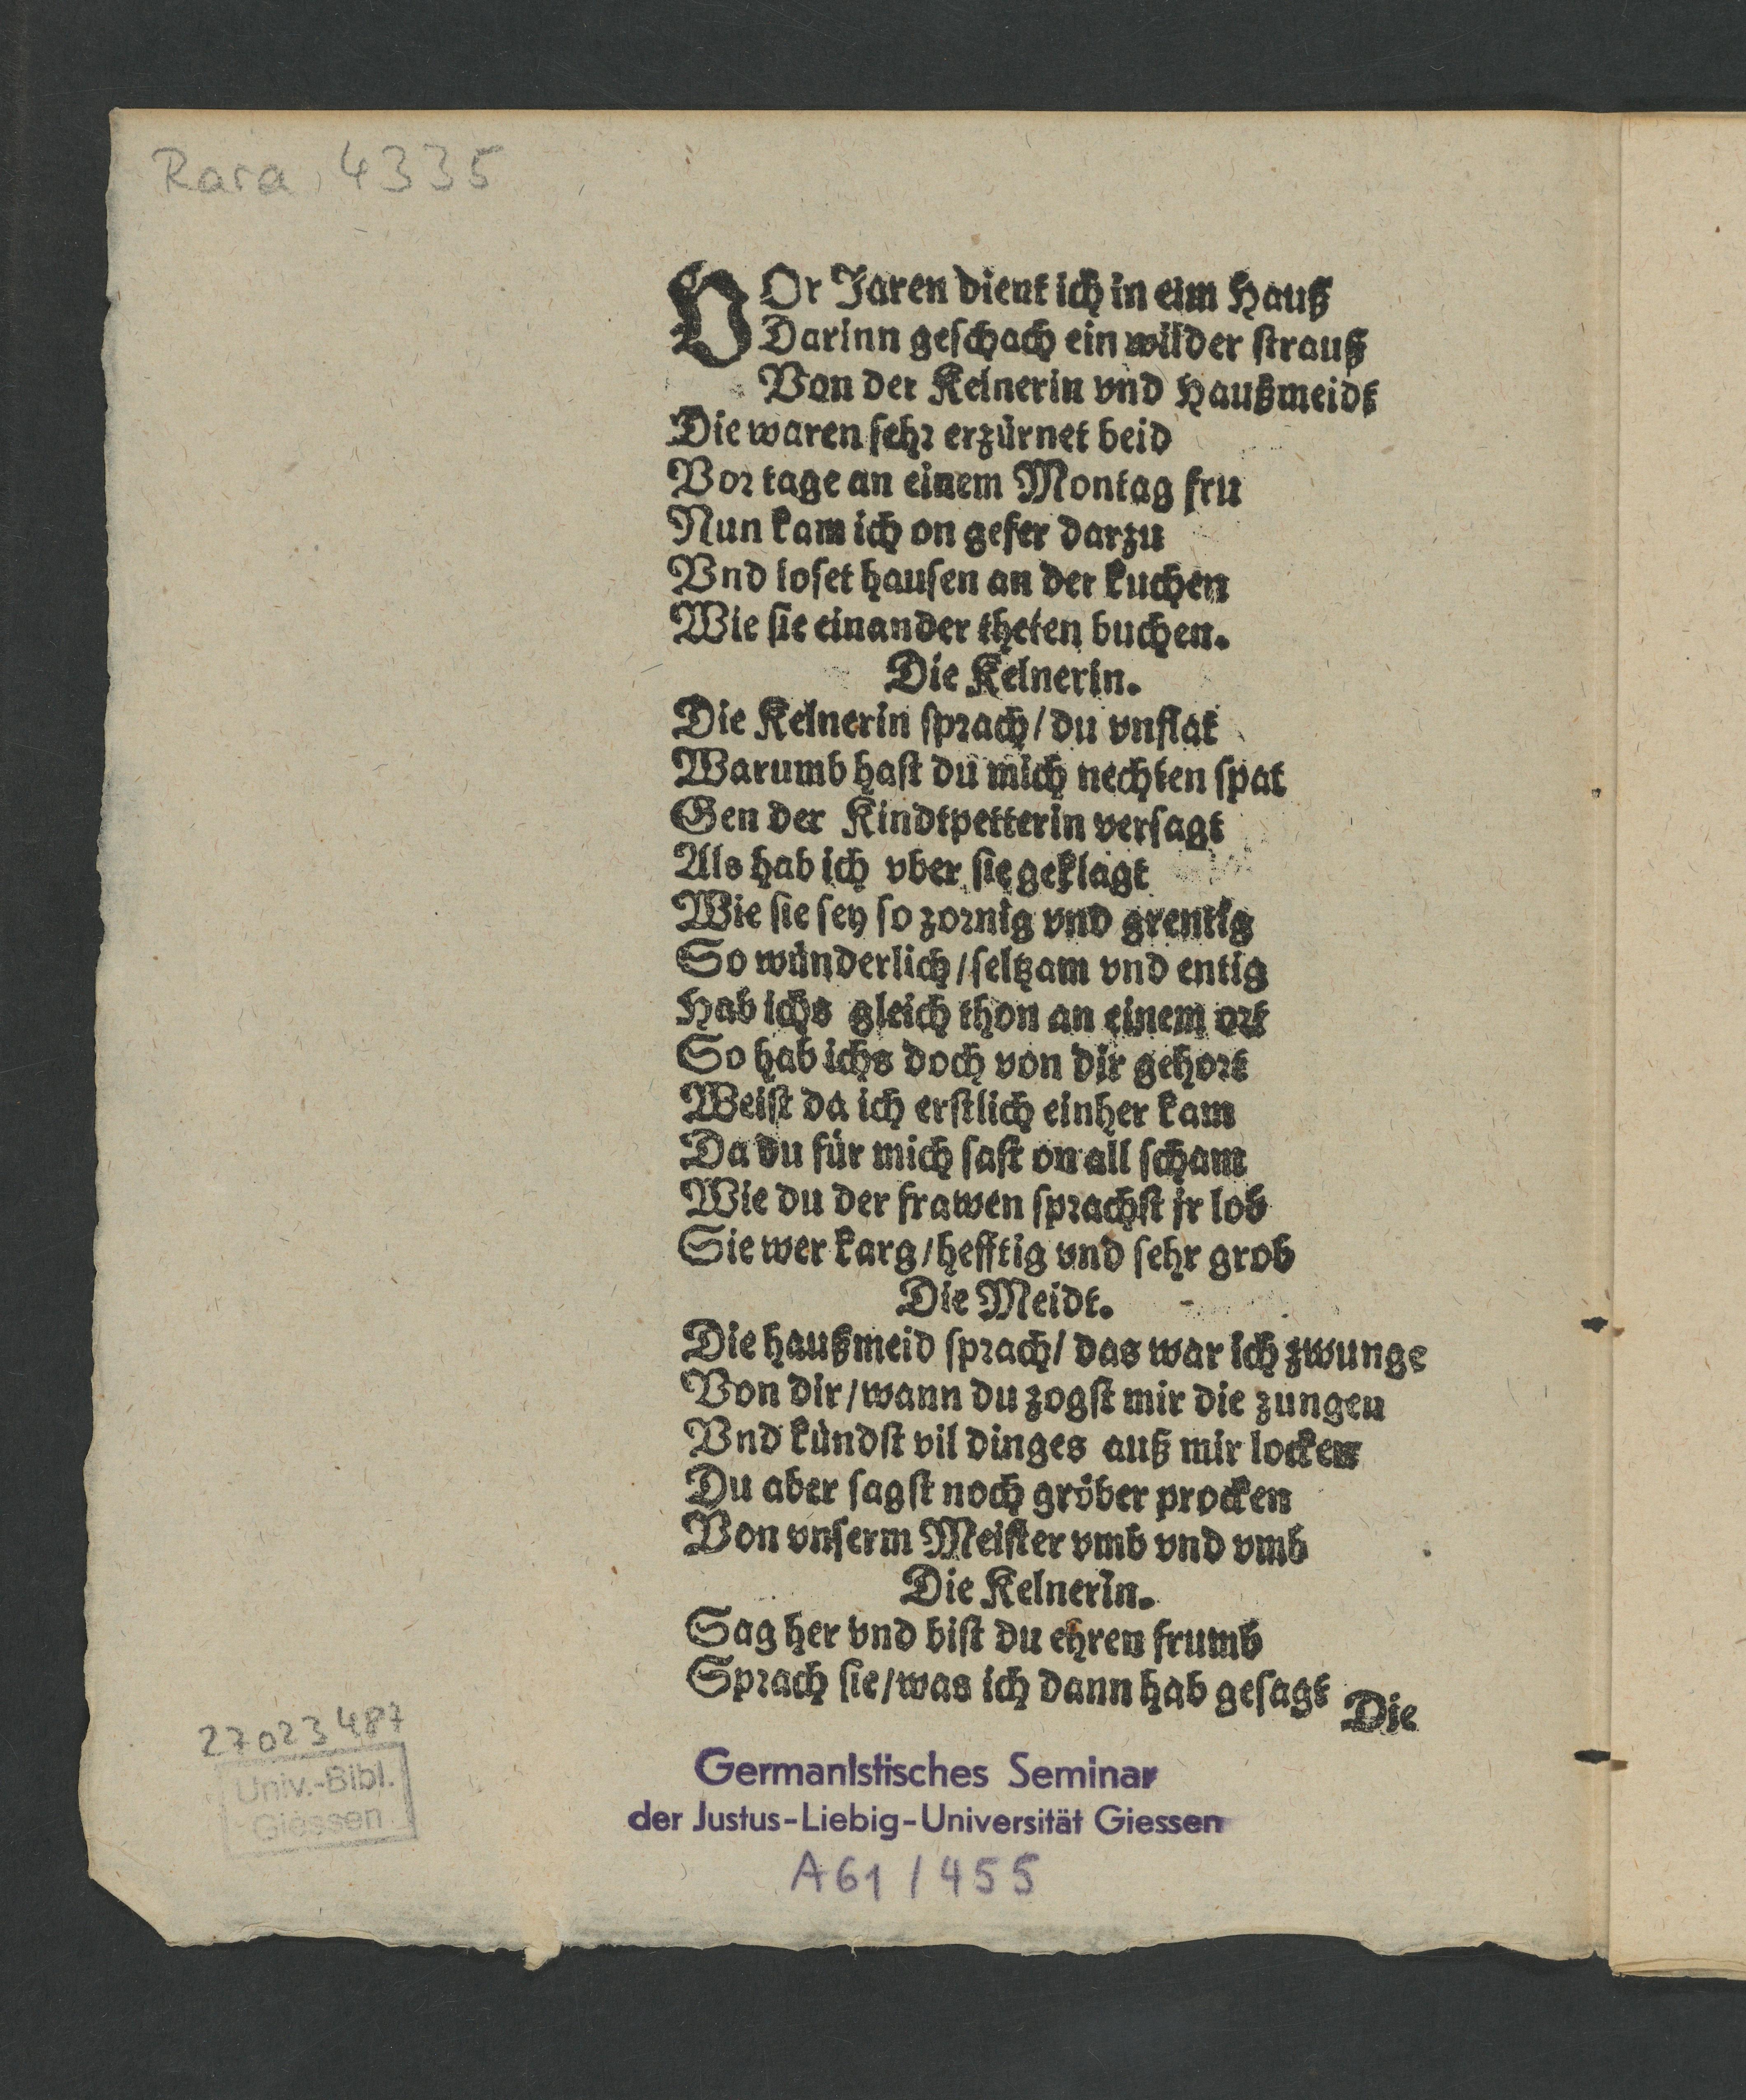 Rara 4335
VOr Jaren dient ich in eim Hauß
Darinn geschach ein wilder strauß
Von der Kelnerin vnd Haußmeidt
Die waren sehr erzürnet beid
Vor tage an einem Montag fru
Nun kam ich on gefer darzu
Vnd loset hausen an der kuchen
Wie sie einander theten buchen.
Die Kelnerin.
Die Kelnerin sprach/ du vnflat
Warumb hast du mich nechten spat
Gen der Kindtpetterin versagt
Als hab ich vber sie geklagt
Wie sie sey so zornig vnd grentig
So wünderlich/ seltzam vnd entig
Hab ichs gleich thon an einem ort
So hab ichs doch von dir gehort
Weist da ich erstlich einher kam
Da du für mich sast on all scham
Wie du der frawen sprachst jr lob
Sie wer karg/ hefftig vnd sehr grob
Die Meidt.
Die haußmeid sprach/ das war ich zwunge
Von dir/ wann du zogst mir die zungen
Vnd kündst vil dinges auß mir locken
Du aber sagst noch gröber procken
Von vnserm Meister vmb vnd vmb
Die Kelnerin.
Sag her vnd bist du ehren frumb
Sprach sie/ was ich dann hab gesagt
Die
27023487
Univ.-Bibl.
Giessen
Germanistisches Seminar
der Justus-Liebig-Universität Giessen
A61/455